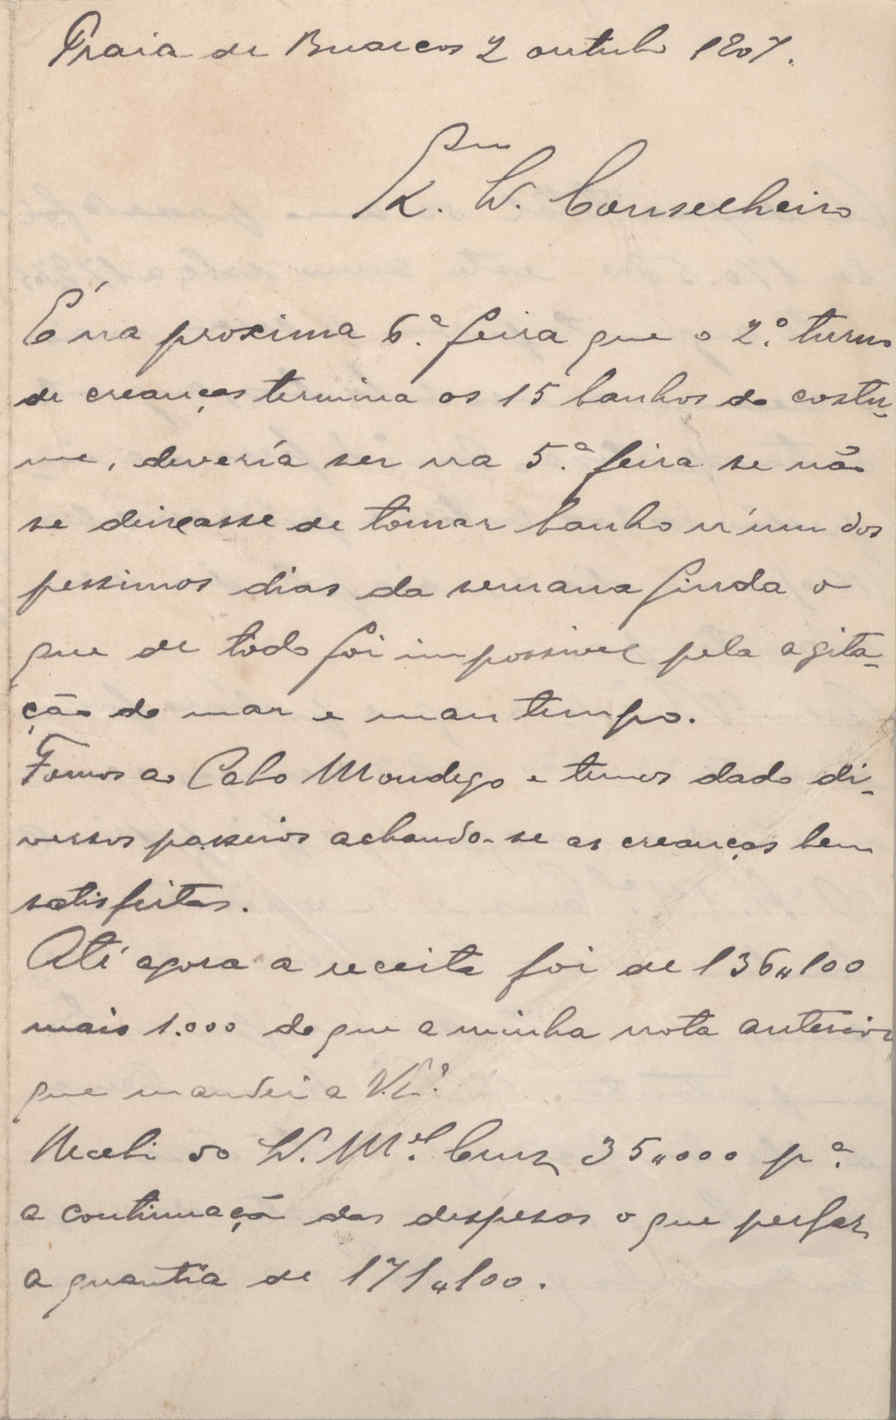 Praia de Buarcos 2 outubro 1907.
Exmo
Sr. Conselheiro
É na proxima 6.ª feira que o 2.º turno
de creanças termina os 15 banhos do costu-
me, devería ser na 5.ª feira se não
se deixasse de tomar banho n'um dos
pessimos dias da semana finda o
que de todo foi impossivel pela agita-
ção do mar e mau tempo.
Fomos ao Cabo Mondego e temos dado di-
versos passeios achando-se as creanças bem
satisfeitas.
Até agora a receita foi de 136,,100
mais 1.000 do que a minha nota anterior
que mandei a V.Ex.ª
Recebi do Sr. M.el Cruz 35,,000 p.ª
a continuação das despesas o que perfaz
a quantia de 171,,100.